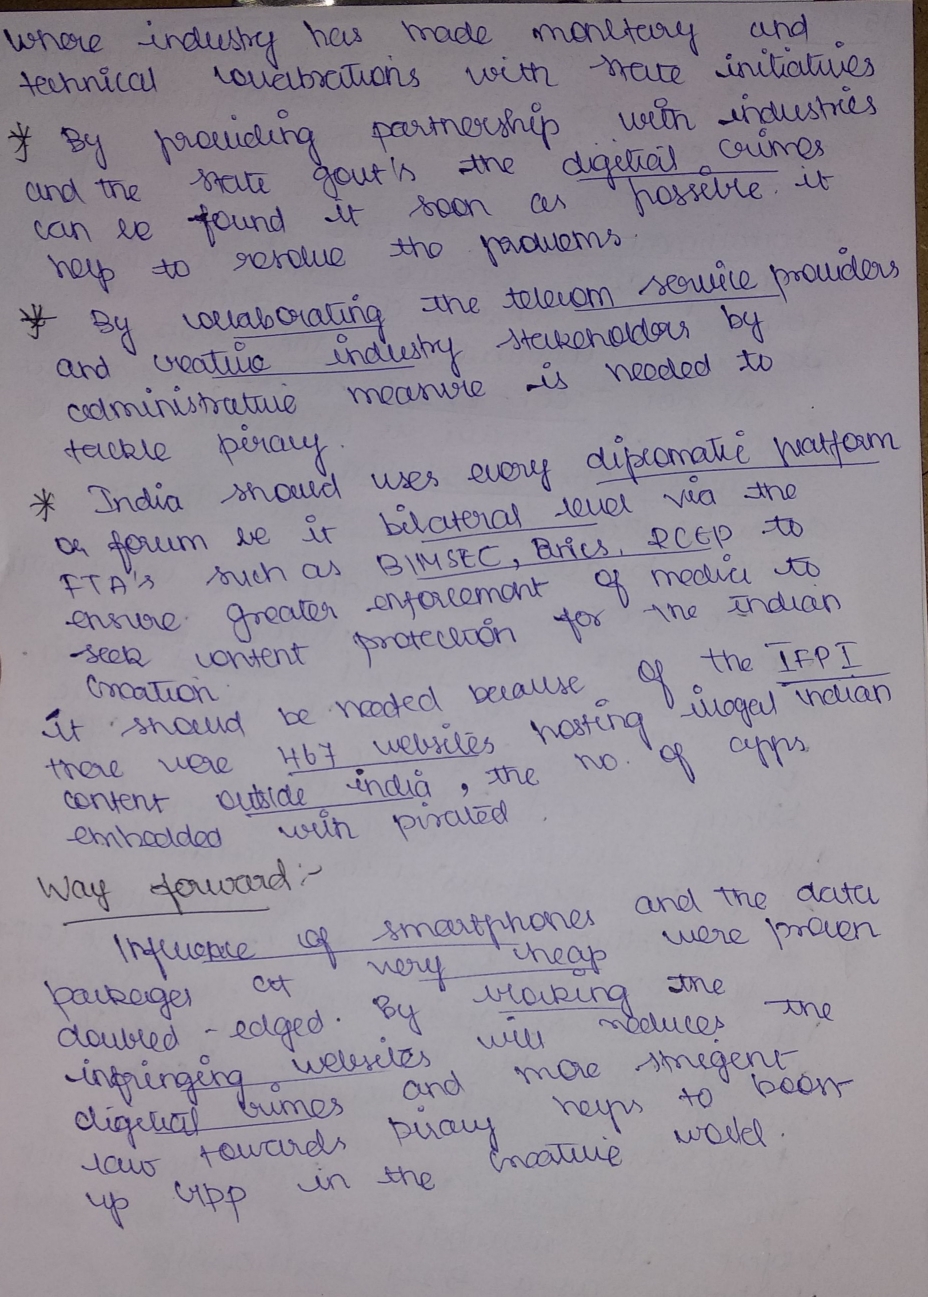 where industry has made monetary and
technical collabrations with state initiatives
* By providing partnership with industries
and the state govt's the digitial crimes
can be found it soon as possible. it
help to resolve the problems.
* By collaborating the telecom service providers
and creative industry stakeholders by
administrative measure is needed to
tackle piracy.
* India should uses every diplomatic platform
or forum be it bilateral level via the
FTA's such as BIMSEC, Brics, RCEP to
ensure greater enforcement of media to
seek content protection for the indian
creation.
it should be needed because of the IFPI
there were 467 websites hosting illegal indian
content outside india, the no. of apps
embedded with pirated.
Way forward:-
Influence of smartphones and the data
packages at very cheap were proven
doubled-edged. By blocking the
infringing websites will reduces the
digitial crimes and more stringent
law towards piracy helps to boost
up in the creative world.